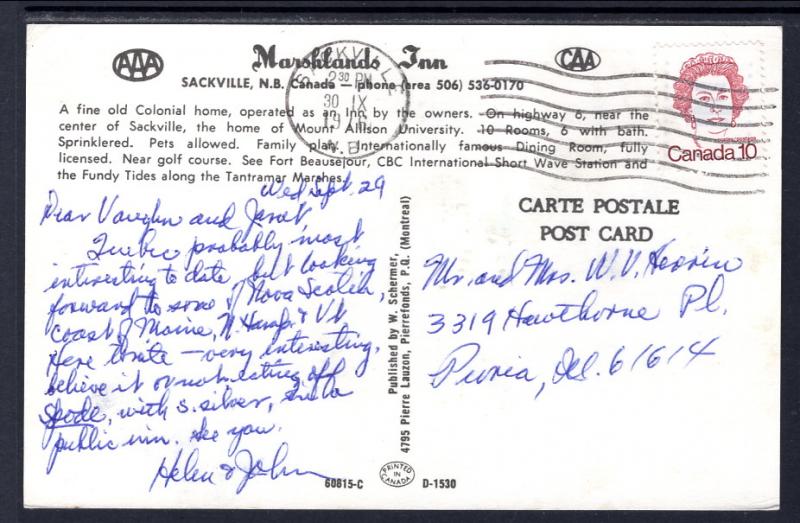 AAA
Marshlands Inn
CAA
SACKVILLE, N.B. Canada — phone (area 506) 536-0170
A fine old Colonial home, operated as an Inn by the owners. On highway 6, near the
center of Sackville, the home of Mount Allison University. 10 Rooms, 6 with bath.
Sprinklered. Pets allowed. Family plan. Internationally famous Dining Room, fully
licensed. Near golf course. See Fort Beausejour, CBC International Short Wave Station and
the Fundy Tides along the Tantramar Marshes.
SACKVILLE
2 30 PM
30 IX
19
N.B.
Canada 10
Wed Sept. 29
Dear Vaughn and Janet
Quebec probably most
interesting to date, but looking
forward to some of Nova Scotia,
coast of Maine, N. Hamp. & Vt
Here tonite — very interesting,
believe it or not eating off
Spode, with s. silver, in a
public inn. See you.
Helen & John
CARTE POSTALE
POST CARD
Mr. and Mrs. W. V.
3319 Hawthorne Pl.
Peoria, Ill. 61614
Published by W. Schermer,
4795 Pierre Lauzon, Pierrefonds, P.Q. (Montreal)
60815-C
PRINTED IN CANADA
D-1530